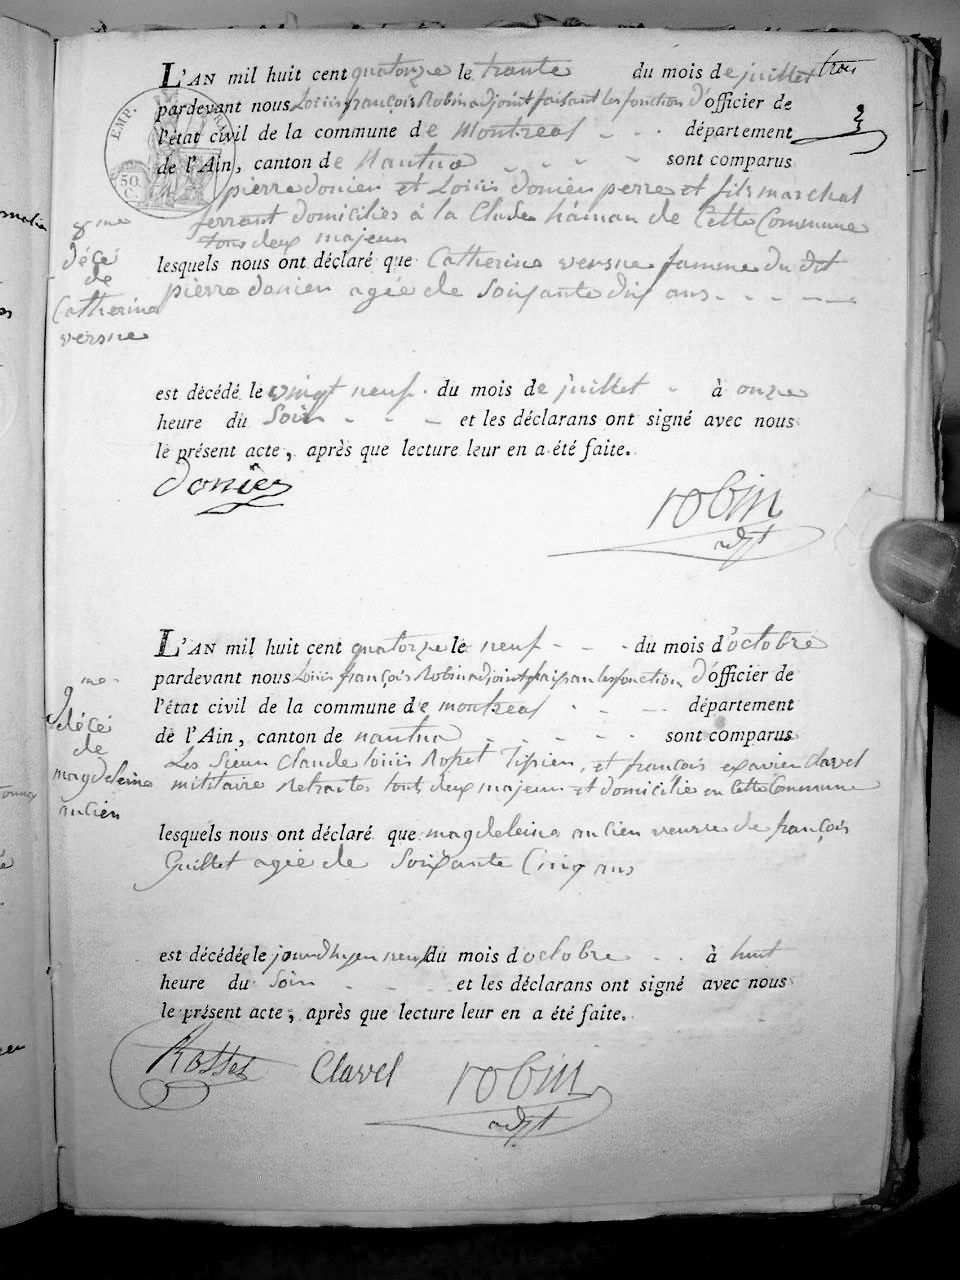 L'AN mil huit cent quatorze le trante du mois de juillet trois
pardevant nous Loüis françois Robin adjoint faisant les fonction d'officier de
l'état civil de la commune de Montreal département
de l'Ain, canton de Nantua sont comparus
pierre donien et Loüis donien perre et fils marchal
ferrant domicilies à la Clude hâman de Cette Commune
tous deux majeur
lesquels nous ont déclaré que Catherine versne famme du dit
pierre donien agée de Soixante dix ans
8me
décé
de
Catherine
versne
EMP.
50
C.
est décédé le vingt neuf du mois de juillet à onze
heure du Soir et les déclarans ont signé avec nous
le présent acte, après que lecture leur en a été faite.
donier
robin
adjt
L'AN mil huit cent quatorze le neuf du mois d'octobre
pardevant nous Loüis françois Robin adjoint faisan les fonction d'officier de
l'état civil de la commune de montreal département
de l'Ain, canton de nantua sont comparus
Les Sieur Claude loüis Rosset et francois exavier Clavel
militaire Retraites tout deux majeur et domicilie en Cette Commune
9me
décé
de
magdeleine
ancien
lesquels nous ont déclaré que magdeleine ancien veuve de françois
Guillet agée de Soixante Cinq ans
est décédée le jourdhyeu neuf du mois d'octobre à huit
heure du Soir et les déclarans ont signé avec nous
le présent acte, après que lecture leur en a été faite.
Rosset Clavel robin
adjt